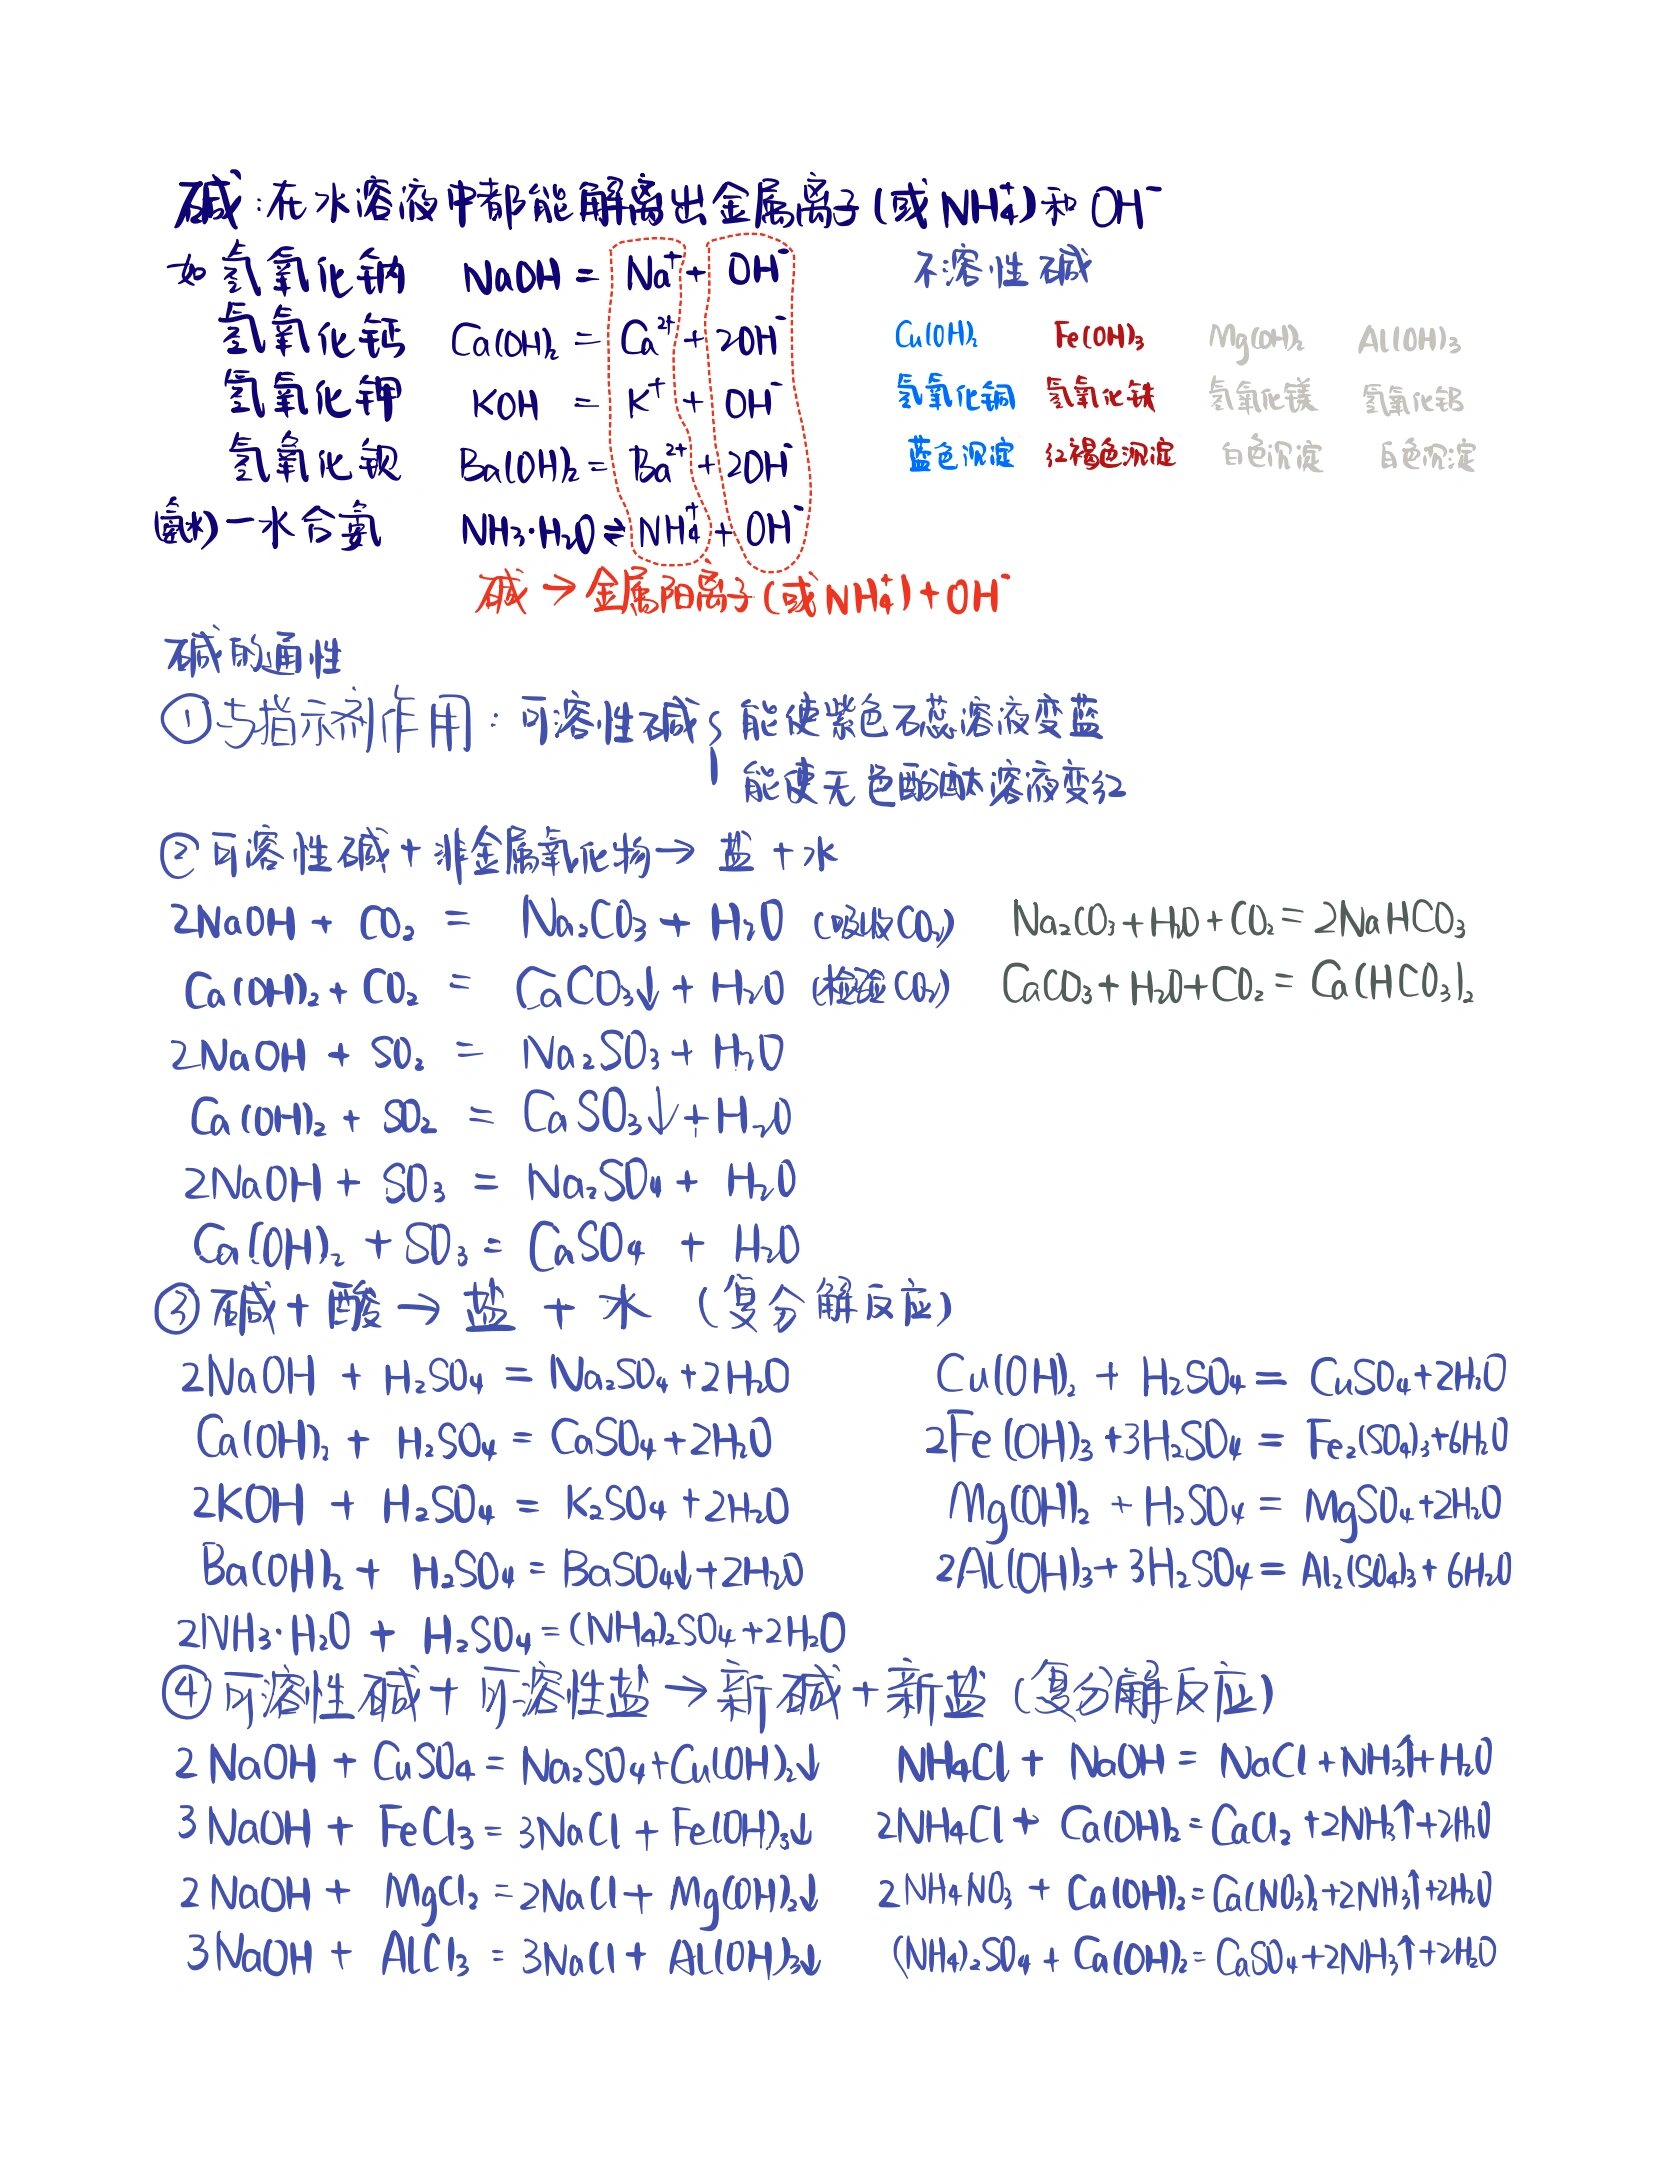 碱:在水溶液中都能解离出金属离子(或NH₄⁺)和OH⁻
如 氢氧化钠 NaOH = Na⁺ + OH⁻
氢氧化钙 Ca(OH)₂ = Ca²⁺ + 2OH⁻
氢氧化钾 KOH = K⁺ + OH⁻
氢氧化钡 Ba(OH)₂ = Ba²⁺ + 2OH⁻
(氨水)一水合氨 NH₃·H₂O ⇌ NH₄⁺ + OH⁻
碱 → 金属阳离子(或NH₄⁺) + OH⁻
不溶性碱
Cu(OH)₂ Fe(OH)₃ Mg(OH)₂ Al(OH)₃
氢氧化铜 氢氧化铁 氢氧化镁 氢氧化铝
蓝色沉淀 红褐色沉淀 白色沉淀 白色沉淀
碱的通性
①与指示剂作用:可溶性碱{能使紫色石蕊溶液变蓝
能使无色酚酞溶液变红
②可溶性碱+非金属氧化物→盐+水
2NaOH + CO₂ = Na₂CO₃ + H₂O (吸收CO₂) Na₂CO₃+H₂O+CO₂=2NaHCO₃
Ca(OH)₂ + CO₂ = CaCO₃↓ + H₂O (检验CO₂) CaCO₃+H₂O+CO₂=Ca(HCO₃)₂
2NaOH + SO₂ = Na₂SO₃ + H₂O
Ca(OH)₂ + SO₂ = CaSO₃↓+H₂O
2NaOH + SO₃ = Na₂SO₄ + H₂O
Ca(OH)₂ + SO₃ = CaSO₄ + H₂O
③碱+酸→盐+水 (复分解反应)
2NaOH + H₂SO₄ = Na₂SO₄+2H₂O Cu(OH)₂ + H₂SO₄ = CuSO₄+2H₂O
Ca(OH)₂ + H₂SO₄ = CaSO₄+2H₂O 2Fe(OH)₃+3H₂SO₄ = Fe₂(SO₄)₃+6H₂O
2KOH + H₂SO₄ = K₂SO₄+2H₂O Mg(OH)₂ + H₂SO₄ = MgSO₄+2H₂O
Ba(OH)₂ + H₂SO₄ = BaSO₄↓+2H₂O 2Al(OH)₃+3H₂SO₄ = Al₂(SO₄)₃+6H₂O
2NH₃·H₂O + H₂SO₄ = (NH₄)₂SO₄+2H₂O
④可溶性碱+可溶性盐→新碱+新盐(复分解反应)
2NaOH + CuSO₄ = Na₂SO₄+Cu(OH)₂↓ NH₄Cl + NaOH = NaCl+NH₃↑+H₂O
3NaOH + FeCl₃ = 3NaCl + Fe(OH)₃↓ 2NH₄Cl + Ca(OH)₂ = CaCl₂+2NH₃↑+2H₂O
2NaOH + MgCl₂ = 2NaCl + Mg(OH)₂↓ 2NH₄NO₃ + Ca(OH)₂ = Ca(NO₃)₂+2NH₃↑+2H₂O
3NaOH + AlCl₃ = 3NaCl + Al(OH)₃↓ (NH₄)₂SO₄ + Ca(OH)₂ = CaSO₄+2NH₃↑+2H₂O